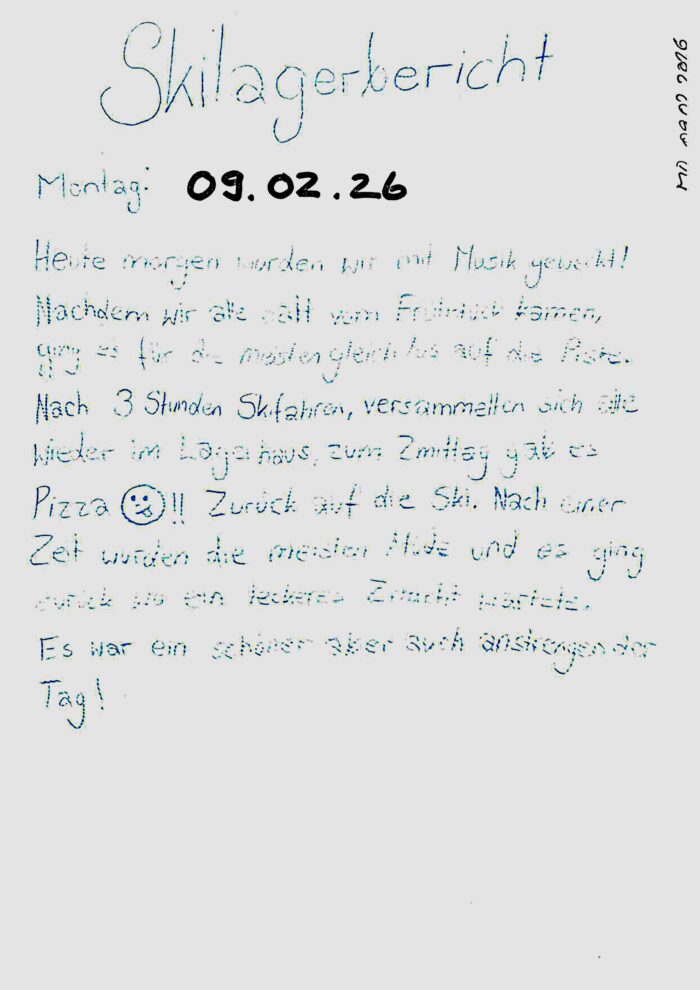 Skilagerbericht
Montag: 09.02.26
Heute morgen wurden wir mit Musik geweckt!
Nachdem wir alle satt vom Frühstück kamen,
ging es für die meisten gleich los auf die Piste.
Nach 3 Stunden Skifahren, versammelten sich alle
wieder im Lagerhaus, zum Zmittag gab es
Pizza!! Zurück auf die Ski. Nach einer
Zeit wurden die meisten Müde und es ging
zurück wo ein leckeres Znacht wartete.
Es war ein schöner aber auch anstrengender
Tag!